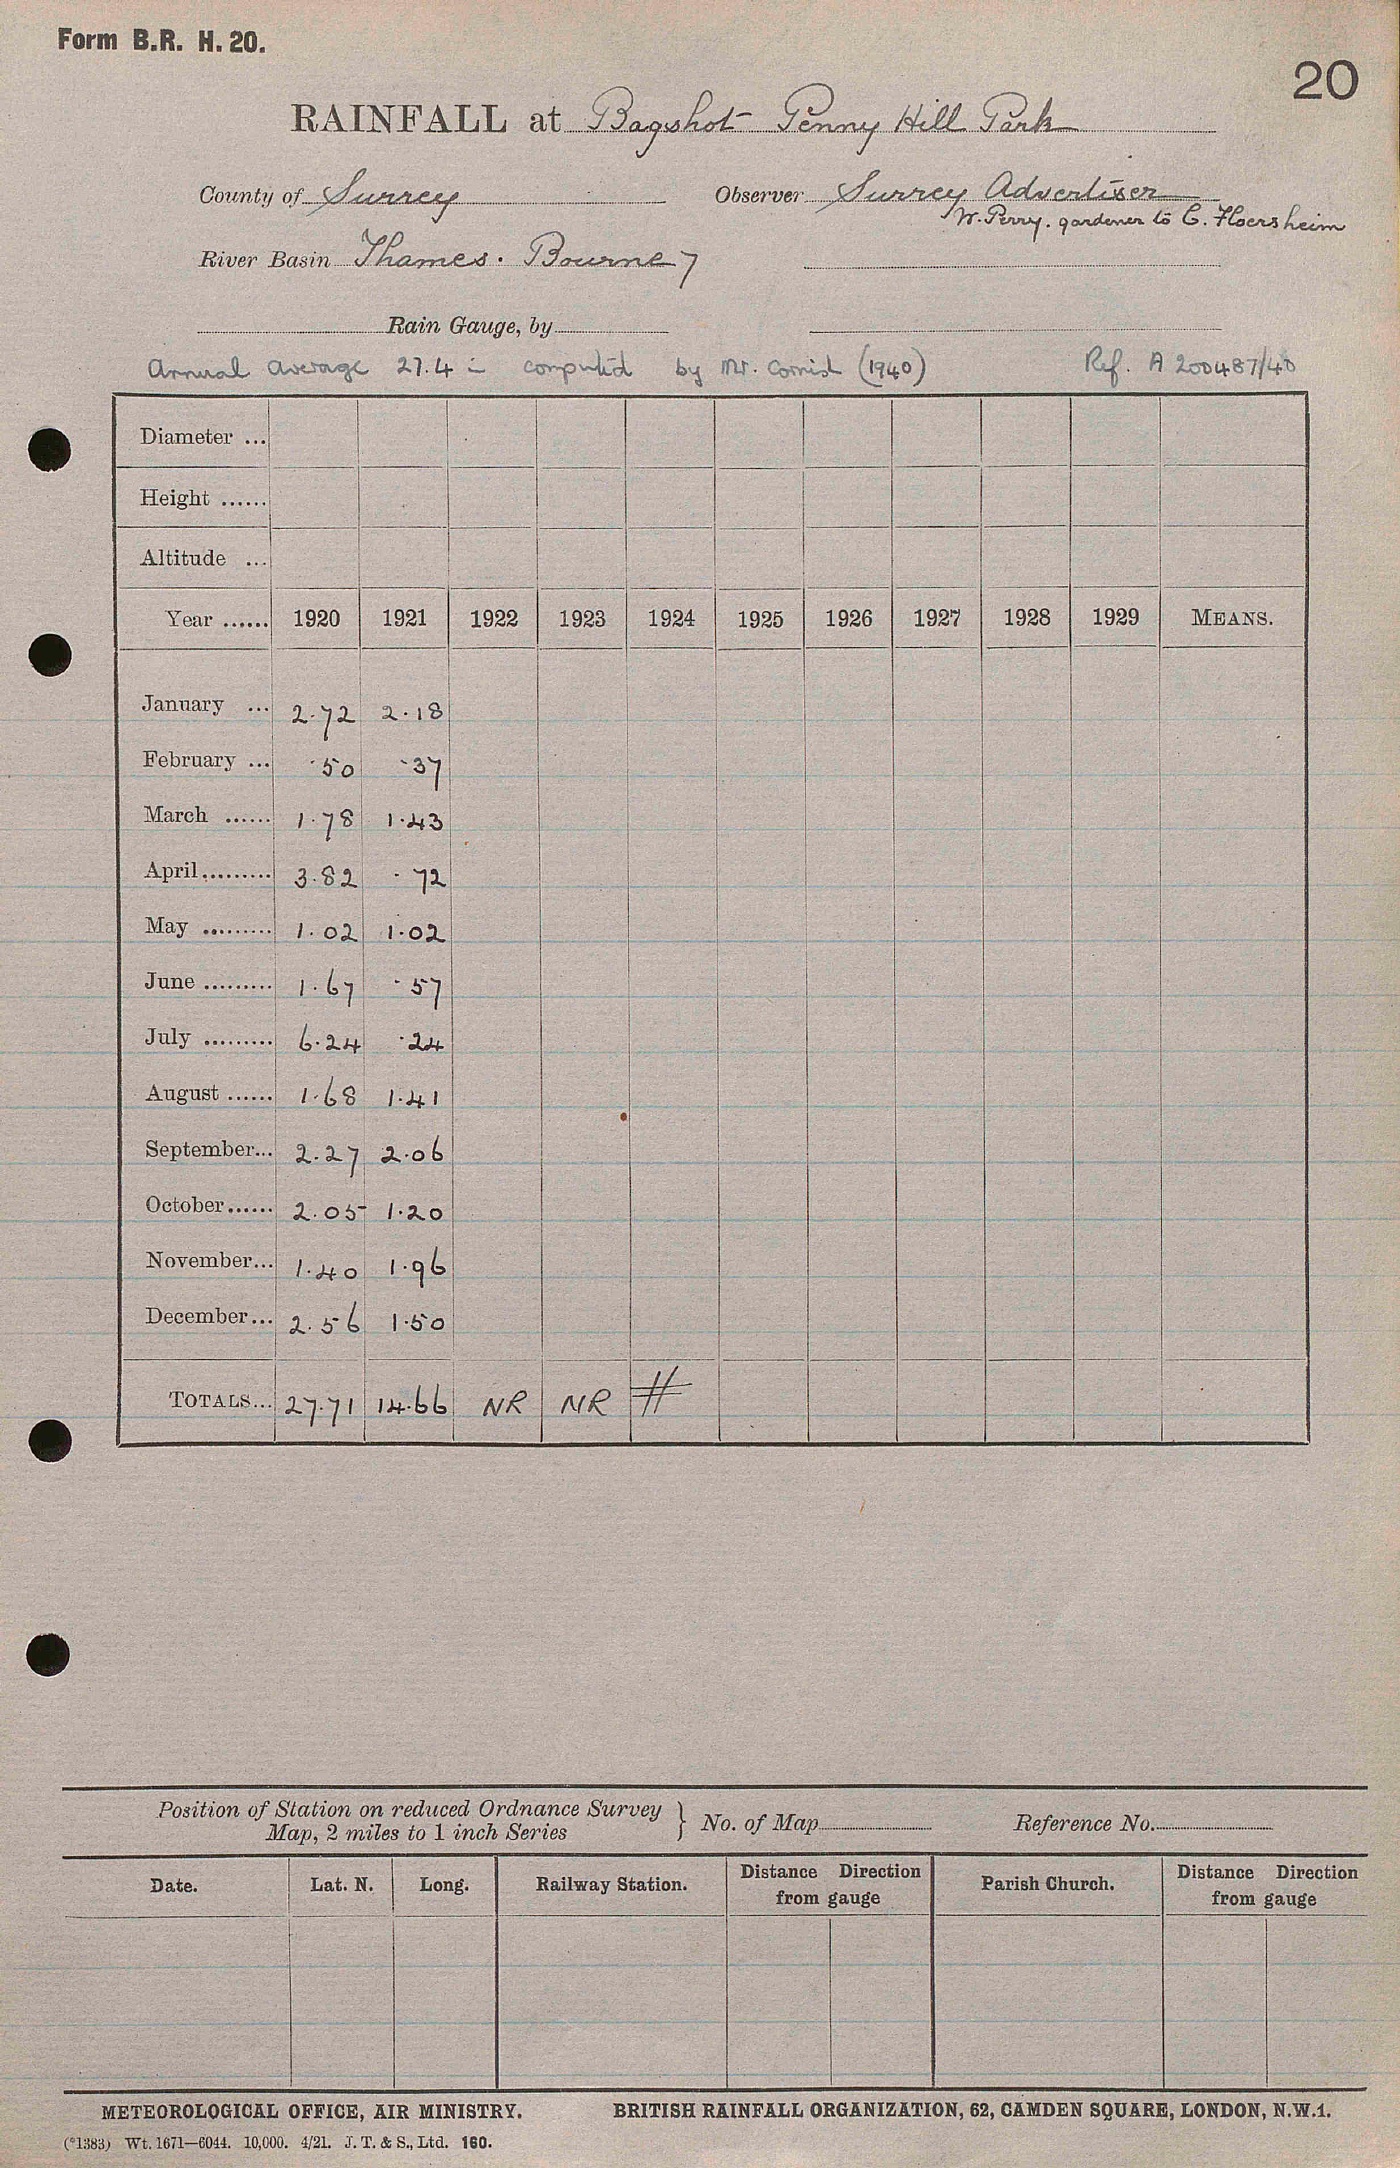 Form B.R. H. 20.
20
RAINFALL at Bagshot Penny Hill Park
County of Surrey Observer Surrey Advertiser
W. Perry. gardener to C. Floersheim
River Basin Thames. Bourne 7
Rain Gauge, by
Annual average 27.4 in computed by Mr. Cornish (1940) Ref. A 200487/40
Diameter ...
Height ......
Altitude ...
Year ...... 1920 1921 1922 1923 1924 1925 1926 1927 1928 1929 MEANS.
January ... 2.72 2.18
February ... .50 .37
March ...... 1.78 1.43
April ......... 3.82 .72
May ......... 1.02 1.02
June ......... 1.67 .57
July ......... 6.24 .24
August ...... 1.68 1.41
September... 2.27 2.06
October...... 2.05 1.20
November... 1.40 1.96
December... 2.56 1.50
TOTALS... 27.71 14.66 NR NR #
Position of Station on reduced Ordnance Survey
Map, 2 miles to 1 inch Series } No. of Map Reference No.
Date. Lat. N. Long. Railway Station. Distance from gauge Direction Parish Church. Distance from gauge Direction
METEOROLOGICAL OFFICE, AIR MINISTRY. BRITISH RAINFALL ORGANIZATION, 62, CAMDEN SQUARE, LONDON, N.W.1.
(*1383) Wt. 1671—6044. 10,000. 4/21. J. T. & S., Ltd. 160.